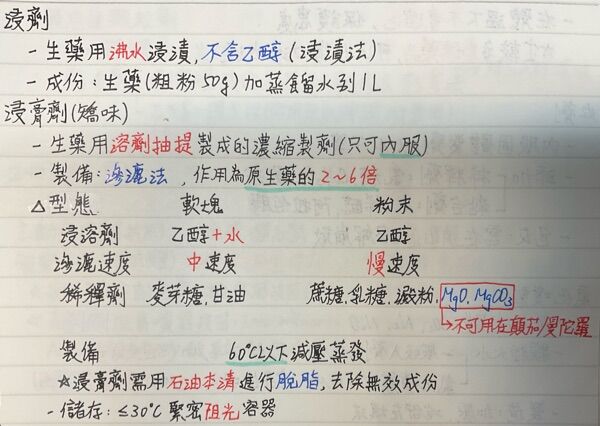 浸劑
- 生藥用沸水浸漬,不含乙醇(浸漬法)
- 成份:生藥(粗粉50g)加蒸餾水到1L
浸膏劑(矯味)
- 生藥用溶劑抽提製成的濃縮製劑(只可內服)
- 製備:滲漉法,作用為原生藥的2~6倍
△型態 軟塊 粉末
浸溶劑 乙醇+水 乙醇
滲漉速度 中速度 慢速度
稀釋劑 麥芽糖,甘油 蔗糖,乳糖,澱粉,MgO, MgCO3
→不可用在顛茄/曼陀羅
製備 60℃以下減壓蒸發
☆浸膏劑需用石油本清進行脫脂,去除無效成份
- 儲存:≤30℃緊密阻光容器